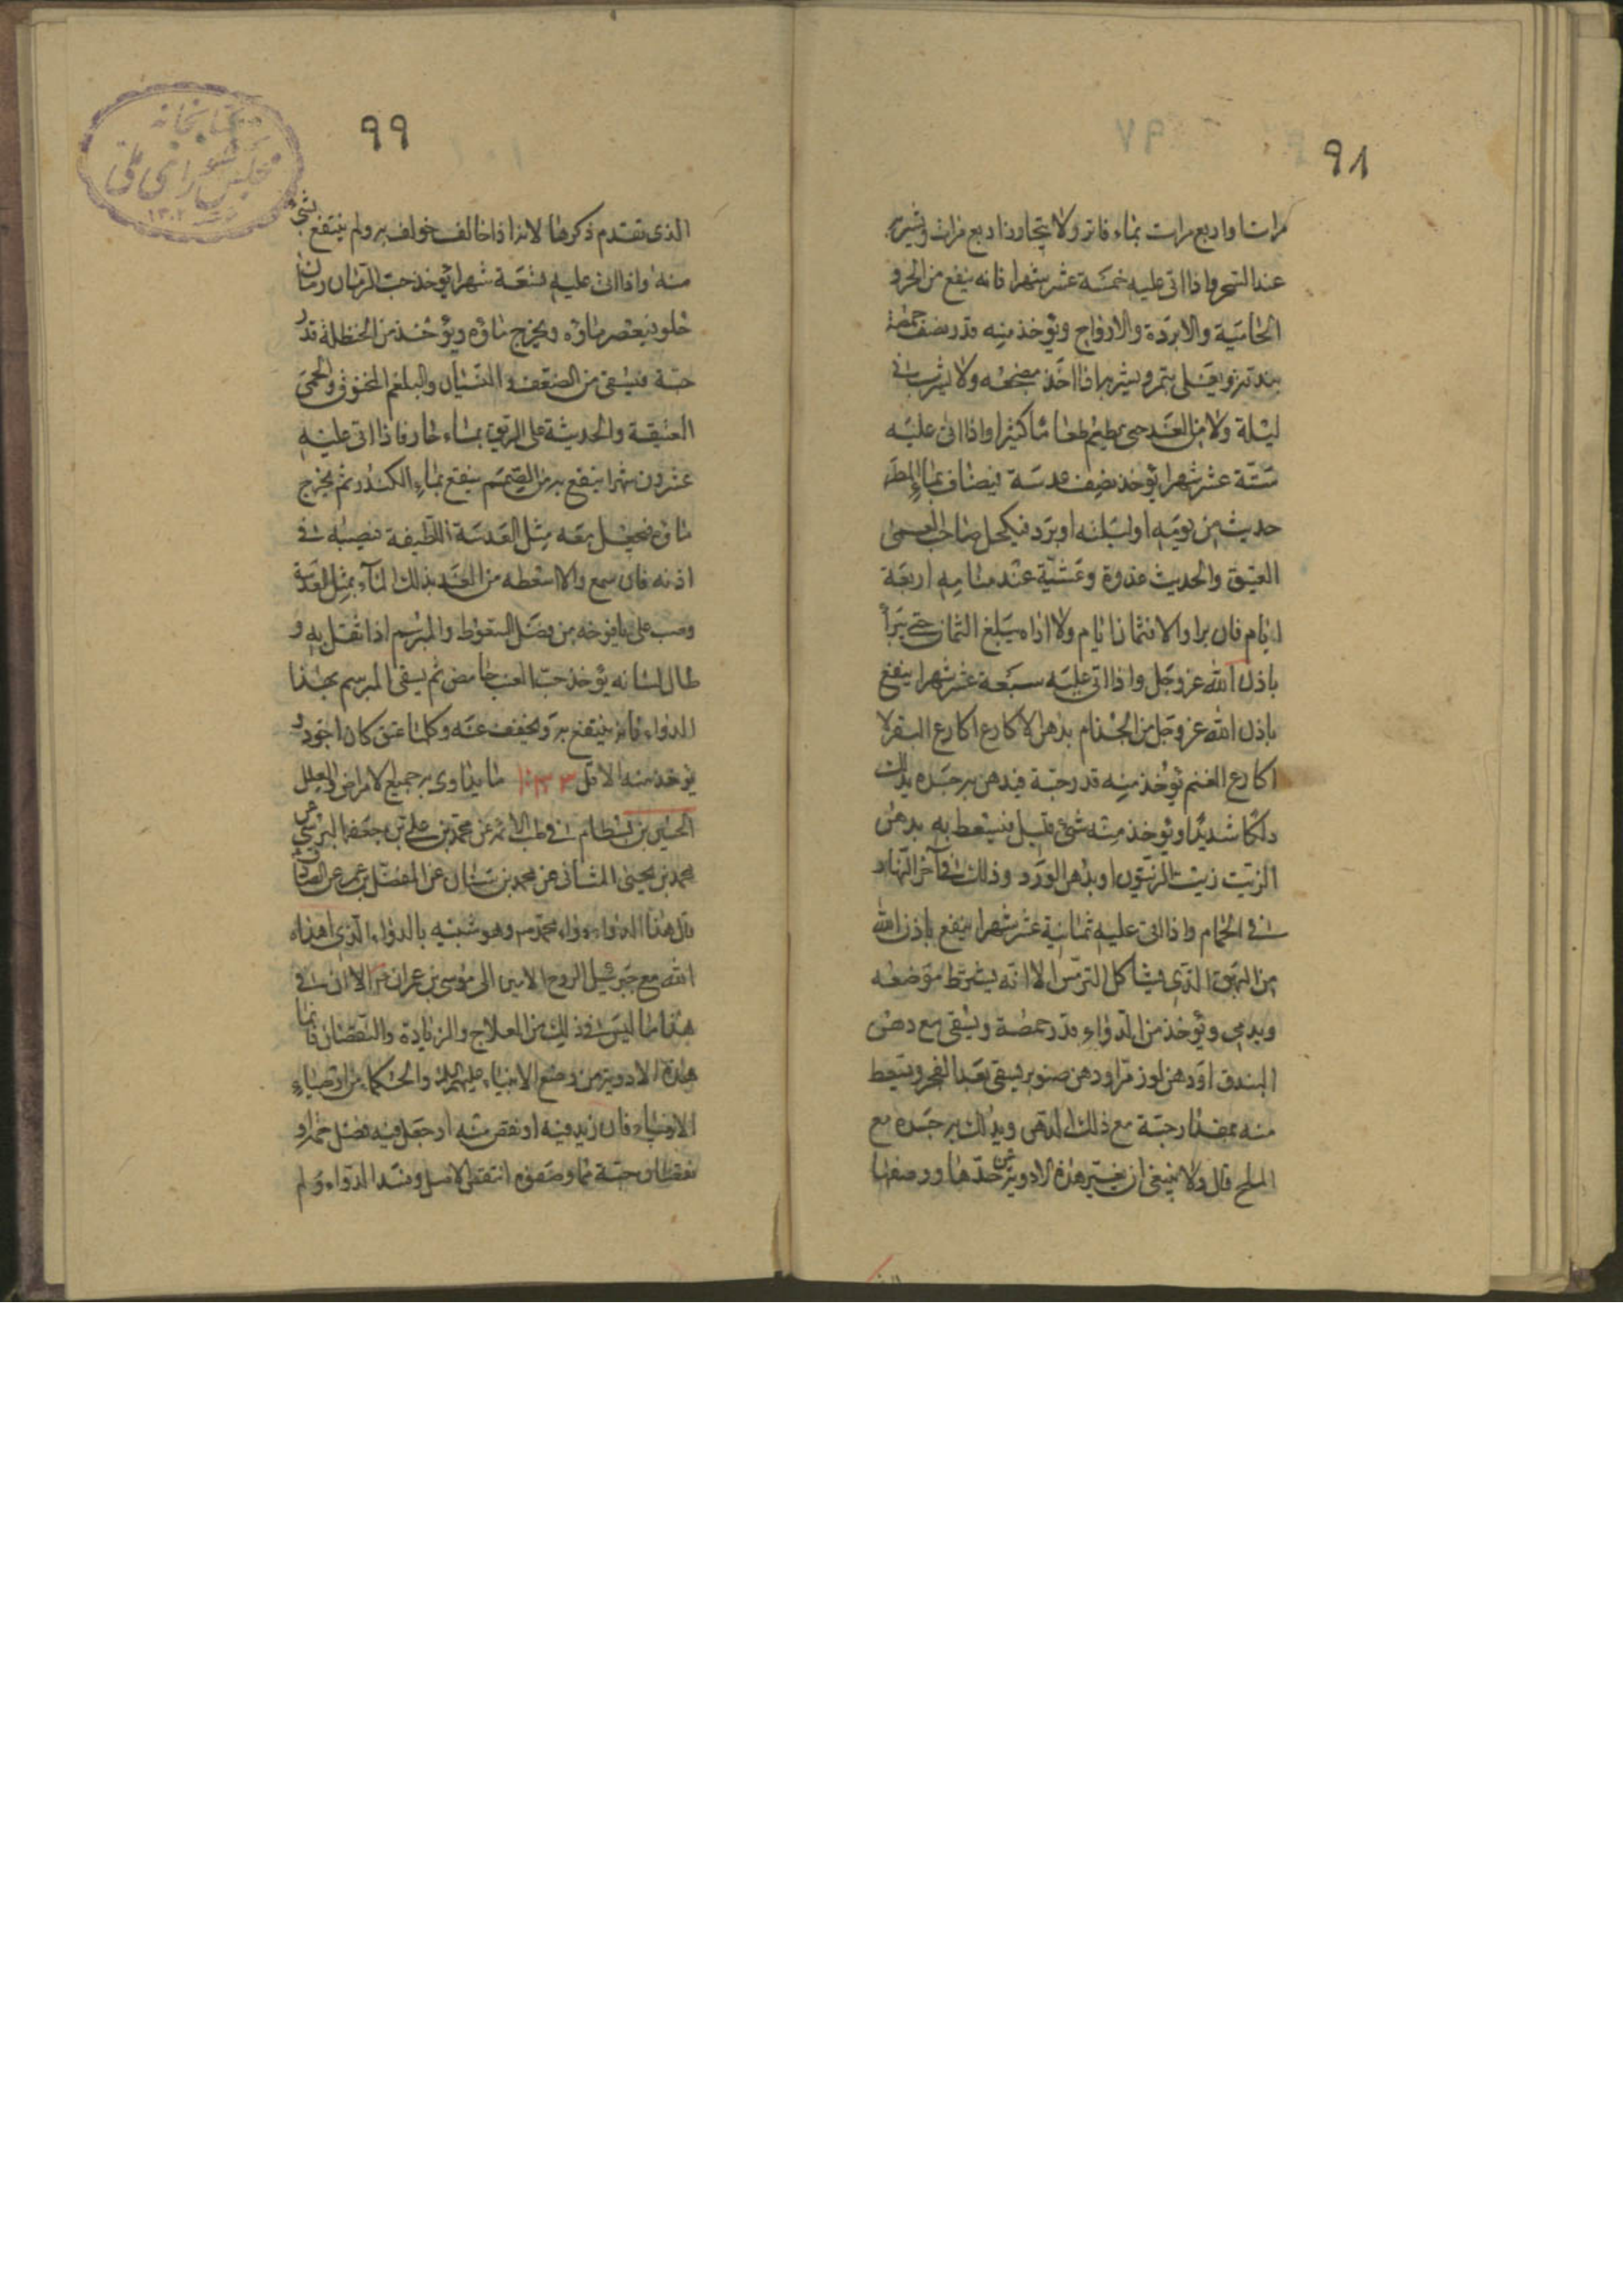 ٩٨
مرات او اربع مرات بماء فاتر ولا يتجاوز اربع مرات ويشربه
عند السحر واذا اتى عليه خمسة عشر شهرا فانه ينفع من السحر و
الخامية والابردة والارواح ويؤخذ منه قدر نصف حمصة
بندقة ويغلى بتمر ويشربه اذا اخذ مضجعه ولا يشرب فى
ليلة ولا من الغد حتى يطعم طعاما كثيرا واذا اتى عليه
ستة عشر شهرا يؤخذ نصف عدسة فيضاف بماء المطر
حديث من يومه او ليلته او برد فيكحل صاحب العمى
العتيق والحديث غدوة وعشية عند منامه اربعة
ايام فان برا والا فثمانية ايام ولا اراه يبلغ الثمان حتى يبرأ
باذن الله عز وجل واذا اتى عليه سبعة عشر شهرا ينفع
باذن الله عز وجل من الجذام بدهن الاكارع اكارع البقر لا
اكارع الغنم يؤخذ منه قدر حبة فيدهن به جسده يدلك
دلكا شديدا ويؤخذ منه شئ قليل فيسعط به بدهن
الزيت زيت الزيتون او بدهن الورد وذلك فى آخر النهار
فى الحمام واذا اتى عليه ثمانية عشر شهرا ينفع باذن الله
من البهق الذى يشاكل البرص الا انه يشرط موضعه
ويدمى ويؤخذ من الدواء قدر حمصة ويسقى مع دهن
البندق او دهن لوز مر او دهن صنوبر يسقى بعد الفجر ويسعط
منه بمقدار حبة مع ذلك الدهن ويدلك به جسده مع
الملح قال ولا ينبغى ان يغير هذه الادوية عن حدها ووصفها
٩٩
الذى تقدم ذكرها لانه اذا خالف خولف به ولم ينتفع بشئ
منه واذا اتى عليه تسعة شهرا يؤخذ حب الرمان رمان
حلو فيعصر ماؤه ويخرج ماؤه ويؤخذ من الحنظلة قدر
حبة فيسقى من الضعف والنسيان والبلغم المحترق والحمى
العتيقة والحديثة على الريق بماء حار فاذا اتى عليه
عشرون شهرا ينفع به من الصمم ينقع بماء الكندر ثم يخرج
ماؤه فيجعل معه مثل العدسة اللطيفة فيصبه فى
اذنه فان سمع والا اسعطه من الغد بذلك الماء بمثل العدسة
وصب على يافوخه من فضل السعوط والمبرسم اذا ثقل به و
طال لسانه يؤخذ حب العنب حامض ثم يسقى المبرسم بهذا
الدواء فانه ينتفع به ويخفف عنه وكلما عتق كان اجود و
يؤخذ منه الاقل ما يداوى به جميع الامراض والعلل
الحسين بن بسطام فى طب الائمة عن محمد بن على بن جعفر البرسى عن
محمد بن يحيى الارمنى عن محمد بن سنان عن المفضل بن عمر عن الصادق
قال هذا الدواء دواء محمد ص وهو شبيه بالدواء الذى اهداه
الله مع جبرئيل الروح الامين الى موسى بن عمران ع الا ان فى
هذا ما ليس فى ذلك من العلاج والزيادة والنقصان فانما
هذه الادوية من وضع الانبياء عليهم السلام والحكماء من اوصياء
الانبياء فان زيد فيه او نقص منه او جعل فيه فضل حبة او
نقصان حبة مما وضعوه انتقض الاصل وفسد الدواء ولم
كتابخانه
مجلس شوراى ملى